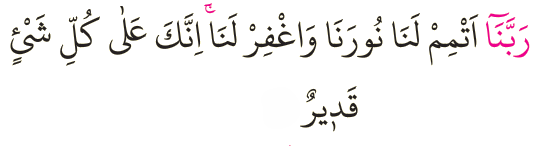 رَبَّنَآ اَتْمِمْ لَنَا نُورَنَا وَاغْفِرْ لَنَاۚ اِنَّكَ عَلٰى كُلِّ شَيْءٍ
قَد۪يرٌ